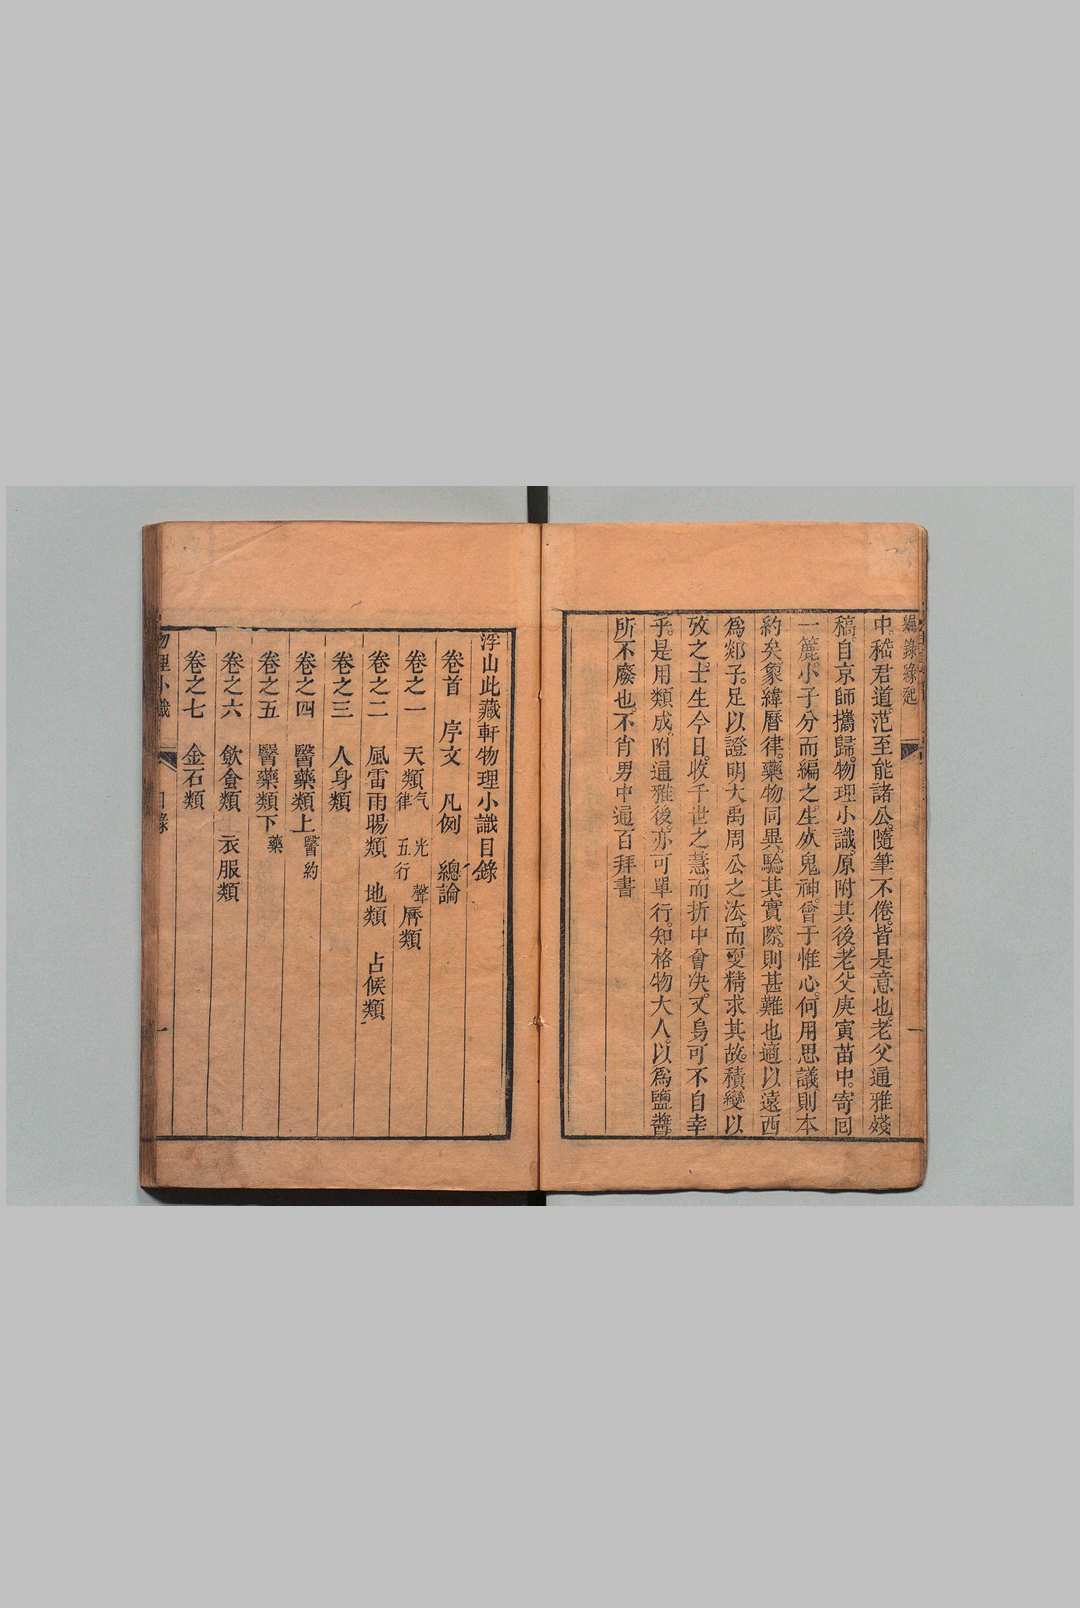 編錄緣起
中。嵇君道。范至能諸公。隨筆不倦。皆是意也。老父通雅殘
稿。自京師攜歸。物理小識。原附其後。老父庚寅苗中。寄回
一簏。小子分而編之。生死鬼神。會于惟心。何用思議。則本
約矣。象緯曆律。藥物同異。驗其實際。則甚難也。適以遠西
爲郯子。足以證明大禹周公之法。而更精求其故。積變以
攷之。士生今日。收千世之慧。而折中會決。又烏可不自幸
乎。是用類成。附通雅後。亦可單行。知格物大人。以爲鹽醬
所不廢也。不肖男中通百拜書
浮山此藏軒物理小識目錄
卷首 序文 凡例 總論
卷之一 天類气 光 聲律 五行 曆類
卷之二 風雷雨暘類 地類 占候類
卷之三 人身類
卷之四 醫藥類上醫約
卷之五 醫藥類下藥
卷之六 飲食類 衣服類
卷之七 金石類
物理小識 目錄 一